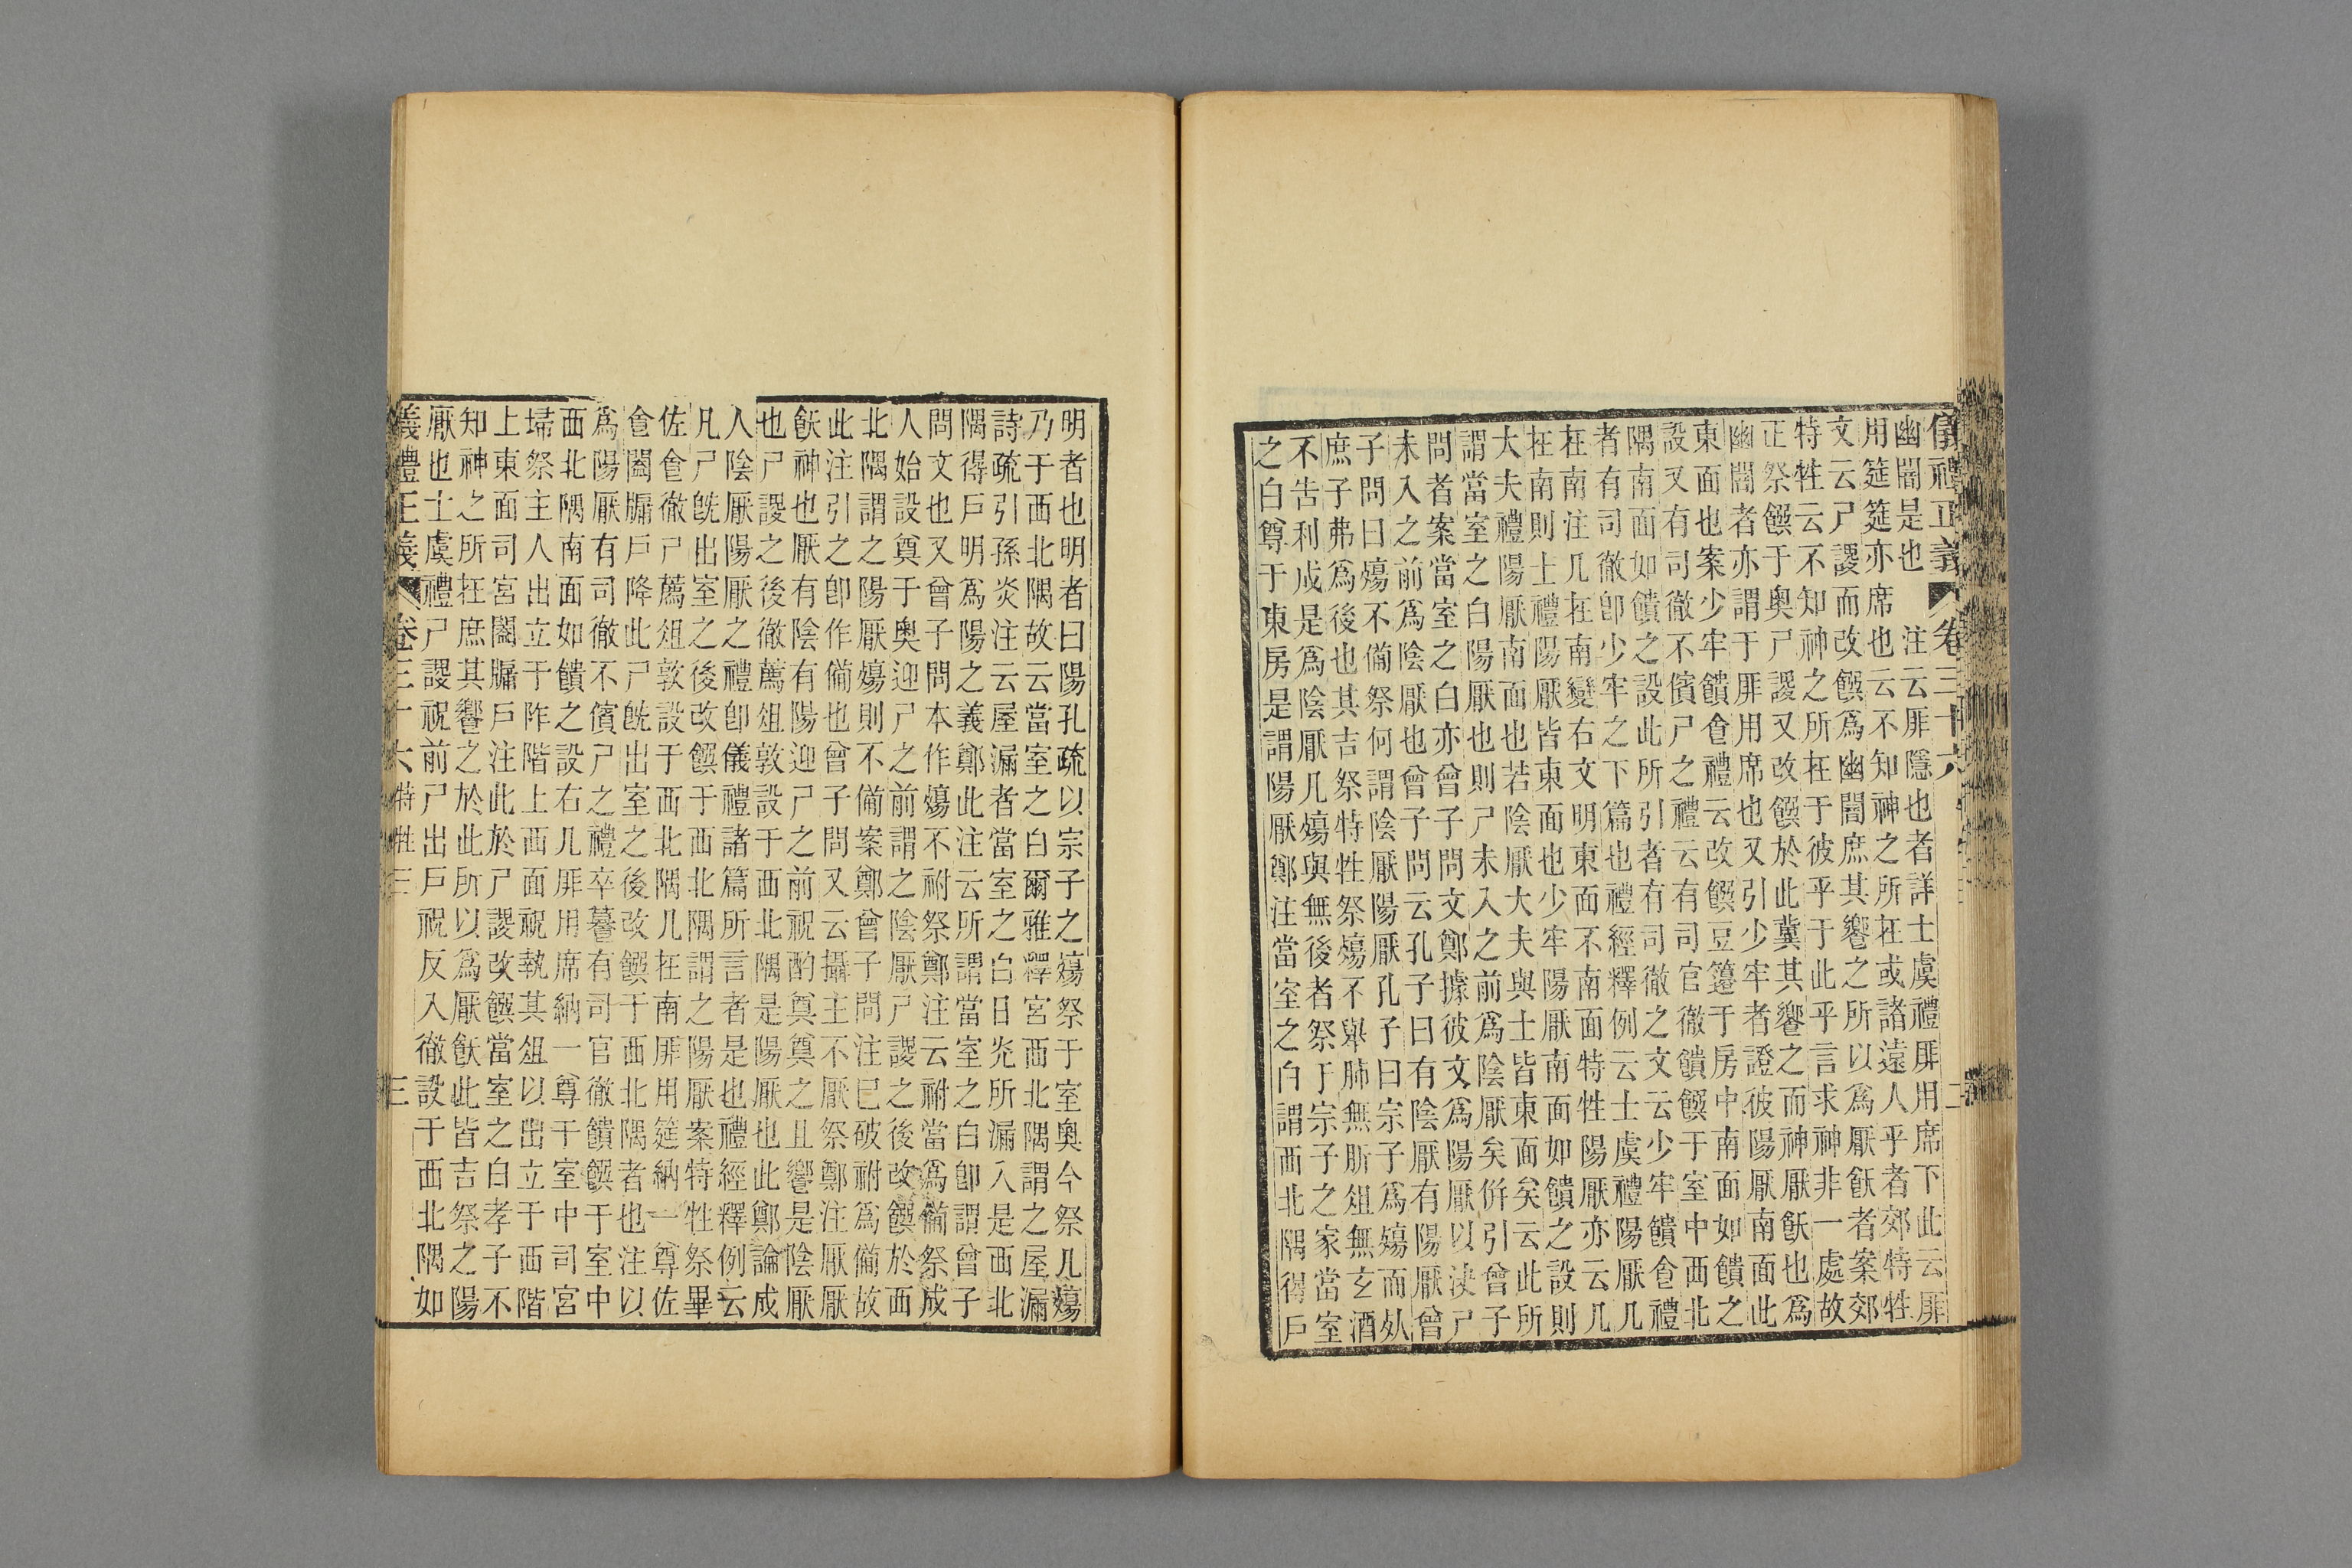 儀禮正義 卷三十六 二
幽闇是也　注云厞隱也者詳士虞禮厞用席下此云厞
用筵筵亦席也云不知神之所在或諸遠人乎者郊特牲
文云尸謖而改饌爲幽闇庶其饗之所以爲厭飫者案郊
特牲云不知神之所在于彼乎于此乎言求神非一處故
正祭饌于奧尸謖又改饌於此冀其饗之而神厭飫也爲
幽闇者亦謂于厞用席也又引少牢者證彼陽厭南面此
東面也案少牢饋食禮云改饌豆籩于房中南面如饋之
設又有司徹不儐尸之禮云有司官徹饋饌于室中西北
隅南面如饋之設此所引者有司徹之文云少牢饋食禮
者有司徹卽少牢之下篇也禮經釋例云士虞禮陽厭几
在南注几在南變右文明東面不南面特牲陽厭亦云几
在南則士禮陽厭皆東面也少牢陽厭南面如饋之設則
大夫禮陽厭南面也若陰厭大夫與士皆東面矣云此所
謂當室之白陽厭也則尸未入之前爲陰厭矣倂引曾子
問者案當室之白亦曾子問文鄭據彼文爲陽厭以決尸
未入之前爲陰厭也曾子問云孔子曰有陰厭有陽厭曾
子問曰殤不備祭何謂陰厭陽厭孔子曰宗子爲殤而死
庶子弗爲後也其吉祭特牲祭殤不舉肺無肵俎無玄酒
不告利成是爲陰厭凡殤與無後者祭于宗子之家當室
之白尊于東房是謂陽厭鄭注當室之白謂西北隅得戶
明者也明者曰陽孔疏以宗子之殤祭于室奧今祭凡殤
乃于西北隅故云當室之白爾雅釋宮西北隅謂之屋漏
詩疏引孫炎注云屋漏者當室之白日光所漏入是西北
隅得戶明爲陽之義鄭此注云所謂當室之白卽謂曾子
問文也又曾子問本作殤不祔祭鄭注云祔當爲備祭成
人始設奠于奧迎尸之前謂之陰厭尸謖之後改饌於西
北隅謂之陽厭殤則不備案鄭曾子問注已破祔爲備故
此注引之卽作備也曾子問又云攝主不厭祭鄭注厭厭
飫神也厭有陰有陽迎尸之前祝酌奠奠之且饗是陰厭
也尸謖之後徹薦俎敦設于西北隅是陽厭也此鄭論成
人陰厭陽厭之禮卽儀禮諸篇所言者是也禮經釋例云
凡尸旣出室之後改饌于西北隅謂之陽厭案特牲祭畢
佐食徹尸薦俎敦設于西北隅几在南厞用筵納一尊佐
食闔牖戶降此尸旣出室之後改饌于西北隅者也注以
爲陽厭有司徹不儐尸之禮卒䕷有司官徹饋饌于室中
西北隅南面如饋之設右几厞用席納一尊于室中司宮
埽祭主人出立于阼階上西面祝執其俎以出立于西階
上東面司宮闔牖戶注此於尸謖改饌當室之白孝子不
知神之所在庶其饗之於此所以爲厭飫此皆吉祭之陽
厭也士虞禮尸謖祝前尸出戶祝反入徹設于西北隅如
義禮正義 卷三十六 特牲三 三